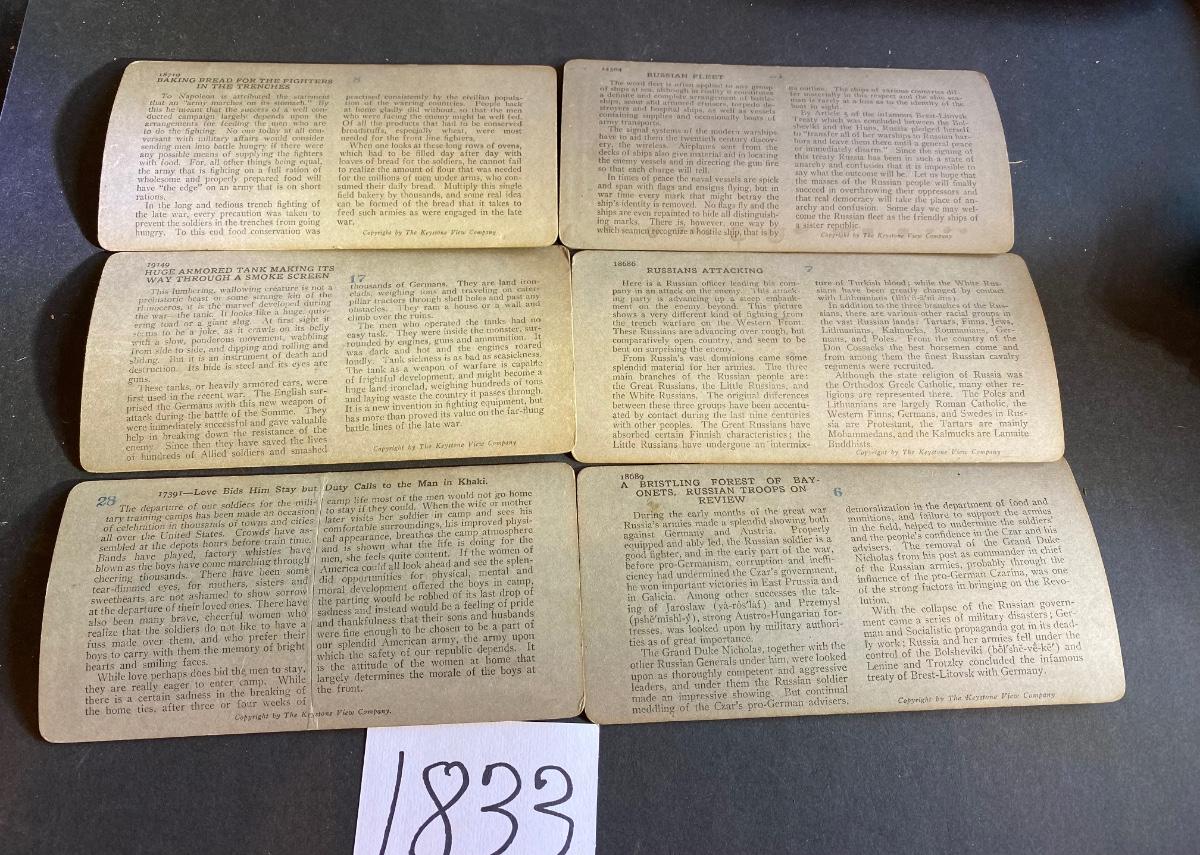 18719
BAKING BREAD FOR THE FIGHTERS
IN THE TRENCHES
8
To Napoleon is attributed the statement
that an "army marches on its stomach." By
this he meant that the success of a well con-
ducted campaign largely depends upon the
arrangements for feeding the men who are
to do the fighting. No one today at all con-
versant with military affairs would consider
sending men into battle hungry if there were
any possible means of supplying the fighters
with food. For, all other things being equal,
the army that is fighting on a full ration of
wholesome and properly prepared food will
have "the edge" on an army that is on short
rations.
In the long and tedious trench fighting of
the late war, every precaution was taken to
prevent the soldiers in the trenches from going
hungry. To this end food conservation was
practised consistently by the civilian popula-
tion of the warring countries. People back
at home gladly did without, so that the men
who were facing the enemy might be well fed.
Of all the products that had to be conserved
breadstuffs, especially wheat, were most
needed for the front line fighters.
When one looks at these long rows of ovens,
which had to be filled day after day with
loaves of bread for the soldiers, he cannot fail
to realize the amount of flour that was needed
for the millions of men under arms, who con-
sumed their daily bread. Multiply this single
field bakery by thousands, and some real idea
can be formed of the bread that it takes to
feed such armies as were engaged in the late
war.
Copyright by The Keystone View Company
RUSSIAN FLEET
The word fleet is often applied to any group
of ships at sea, although in reality it constitutes
a definite and complete armament of battle-
ships, scout and armored cruisers, torpedo de-
stroyers and hospital ships, as well as vessels
containing supplies and occasionally boats of
army transports.
The signal systems of the modern warships
have to aid them the twentieth century discov-
ery, the wireless. Airplanes sent from the
decks of ships also give material aid in locating
the enemy vessels and in directing the gun fire
so that each charge will tell.
In times of peace the naval vessels are spick
and span with flags and ensigns flying, but in
war time every mark that might betray the
ship's identity is removed. No flags fly and the
ships are even repainted to hide all distinguish-
ing marks. There is, however, one way by
which seamen recognize a hostile ship, that is by
its outline. The ships of various countries dif-
fer widely in this respect and the skilled sea-
man is rarely at a loss as to the identity of the
boat in sight.
By Article 5 of the infamous Brest-Litovsk
Treaty which was concluded between the Bol-
sheviki and the Huns, Russia pledged herself
to "transfer all of her warships to Russian har-
bors and leave them there until a general peace
or immediately disarm." Since the signing of
this treaty Russia has been in such a state of
anarchy and confusion that it is impossible to
say what the outcome will be. Let us hope that
the masses of the Russian people will finally
succeed in overthrowing their oppressors and
that real democracy will take the place of an-
archy and confusion. Some day we may wel-
come the Russian fleet as the friendly ships of
a sister republic.
Copyright by The Keystone View Company
19149
HUGE ARMORED TANK MAKING ITS
WAY THROUGH A SMOKE SCREEN
17
This lumbering, wallowing creature is not a
prehistoric beast or some strange kin of the
rhinoceros, it is the marvel developed during
the war—the tank. It looks like a huge, quiv-
ering toad or a giant slug. At first sight it
seems to be a joke, as it crawls on its belly
with a slow, ponderous movement, wabbling
from side to side, and dipping and rolling and
sliding. But it is an instrument of death and
destruction. Its hide is steel and its eyes are
guns.
These tanks, or heavily armored cars, were
first used in the recent war. The English sur-
prised the Germans with this new weapon of
attack during the battle of the Somme. They
were immediately successful and gave valuable
help in breaking down the resistance of the
enemy. Since then they have saved the lives
of hundreds of Allied soldiers and smashed
thousands of Germans. They are land iron-
clads, weighing tons and traveling on cater-
pillar tractors through shell holes and past any
obstacles. They ram a house or a wall and
climb over the ruins.
The men who operated the tanks had no
easy task. They were inside the monster, sur-
rounded by engines, guns and ammunition. It
was dark and hot and the engines roared
loudly. Tank sickness is as bad as seasickness.
The tank as a weapon of warfare is capable
of frightful development, and might become a
huge land ironclad, weighing hundreds of tons
and laying waste the country it passes through.
It is a new invention in fighting equipment, but
has more than proved its value on the far-flung
battle lines of the late war.
Copyright by The Keystone View Company
18686
RUSSIANS ATTACKING
7
Here is a Russian officer leading his com-
pany in an attack on the enemy. This attack-
ing party is advancing up a steep embank-
ment on the enemy beyond. This picture
shows a very different kind of fighting from
the trench warfare on the Western Front.
These Russians are advancing over rough, but
comparatively open country, and seem to be
bent on surprising the enemy.
From Russia's vast dominions came some
splendid material for her armies. The three
main branches of the Russian people are:
the Great Russians, the Little Russians, and
the White Russians. The original differences
between these three groups have been accentu-
ated by contact during the last nine centuries
with other peoples. The Great Russians have
absorbed certain Finnish characteristics; the
Little Russians have undergone an intermix-
ture of Turkish blood; while the White Rus-
sians have been greatly changed by contact
with Lithuanians (lĭth'ū-ā'nĭ-ăns).
In addition to the three branches of the Rus-
sians, there are various other racial groups in
the vast Russian lands: Tartars, Finns, Jews,
Lithuanians, Kalmucks, Roumanians, Ger-
mans, and Poles. From the country of the
Don Cossacks the best horsemen come and
from among them the finest Russian cavalry
regiments were recruited.
Although the state religion of Russia was
the Orthodox Greek Catholic, many other re-
ligions are represented there. The Poles and
Lithuanians are largely Roman Catholic, the
Western Finns, Germans, and Swedes in Rus-
sia are Protestant, the Tartars are mainly
Mohammedans, and the Kalmucks are Lamaite
Buddhists.
Copyright by The Keystone View Company
28
17391—Love Bids Him Stay but Duty Calls to the Man in Khaki.
The departure of our soldiers for the mili-
tary training camps has been made an occasion
of celebration in thousands of towns and cities
all over the United States. Crowds have as-
sembled at the depots hours before train time.
Bands have played, factory whistles have
blown as the boys have come marching through
cheering thousands. There have been some
tear-dimmed eyes, for mothers, sisters and
sweethearts are not ashamed to show sorrow
at the departure of their loved ones. There have
also been many brave, cheerful women who
realize that the soldiers do not like to have a
fuss made over them, and who prefer their
boys to carry with them the memory of bright
hearts and smiling faces.
While love perhaps does bid the men to stay,
they are really eager to enter camp. While
there is a certain sadness in the breaking of
the home ties, after three or four weeks of
camp life most of the men would not go home
to stay if they could. When the wife or mother
later visits her soldier in camp and sees his
comfortable surroundings, his improved physi-
cal appearance, breathes the camp atmosphere
and is shown what the life is doing for the
men, she feels quite content. If the women of
America could all look ahead and see the splen-
did opportunities for physical, mental and
moral development offered the boys in camp,
the parting would be robbed of its last drop of
sadness and instead would be a feeling of pride
and thankfulness that their sons and husbands
were fine enough to be chosen to be a part of
our splendid American army, the army upon
which the safety of our republic depends. It
is the attitude of the women at home that
largely determines the morale of the boys at
the front.
Copyright by The Keystone View Company.
18689
A BRISTLING FOREST OF BAY-
ONETS. RUSSIAN TROOPS ON
REVIEW
6
During the early months of the great war
Russia's armies made a splendid showing both
against Germany and Austria. Properly
equipped and ably led, the Russian soldier is a
good fighter, and in the early part of the war,
before pro-Germanism, corruption and ineffi-
ciency had undermined the Czar's government,
he won important victories in East Prussia and
in Galicia. Among other successes the tak-
ing of Jaroslaw (yä-rôs'läf) and Przemysl
(pshĕ'mishl-y'), strong Austro-Hungarian for-
tresses, was looked upon by military authori-
ties as of great importance.
The Grand Duke Nicholas, together with the
other Russian Generals under him, were looked
upon as thoroughly competent and aggressive
leaders, and under them the Russian soldier
made an impressive showing. But continual
meddling of the Czar's pro-German advisers,
demoralization in the department of food and
munitions, and failure to support the armies
in the field, helped to undermine the soldiers'
and the people's confidence in the Czar and his
advisers. The removal of the Grand Duke
Nicholas from his post as commander in chief
of the Russian armies, probably through the
influence of the pro-German Czarina, was one
of the strong factors in bringing on the Revo-
lution.
With the collapse of the Russian govern-
ment came a series of military disasters; Ger-
man and Socialistic propaganda got in its dead-
ly work; Russia and her armies fell under the
control of the Bolsheviki (bôl'shĕ-vē-kē') and
Lenine and Trotzky concluded the infamous
treaty of Brest-Litovsk with Germany.
Copyright by The Keystone View Company
1833